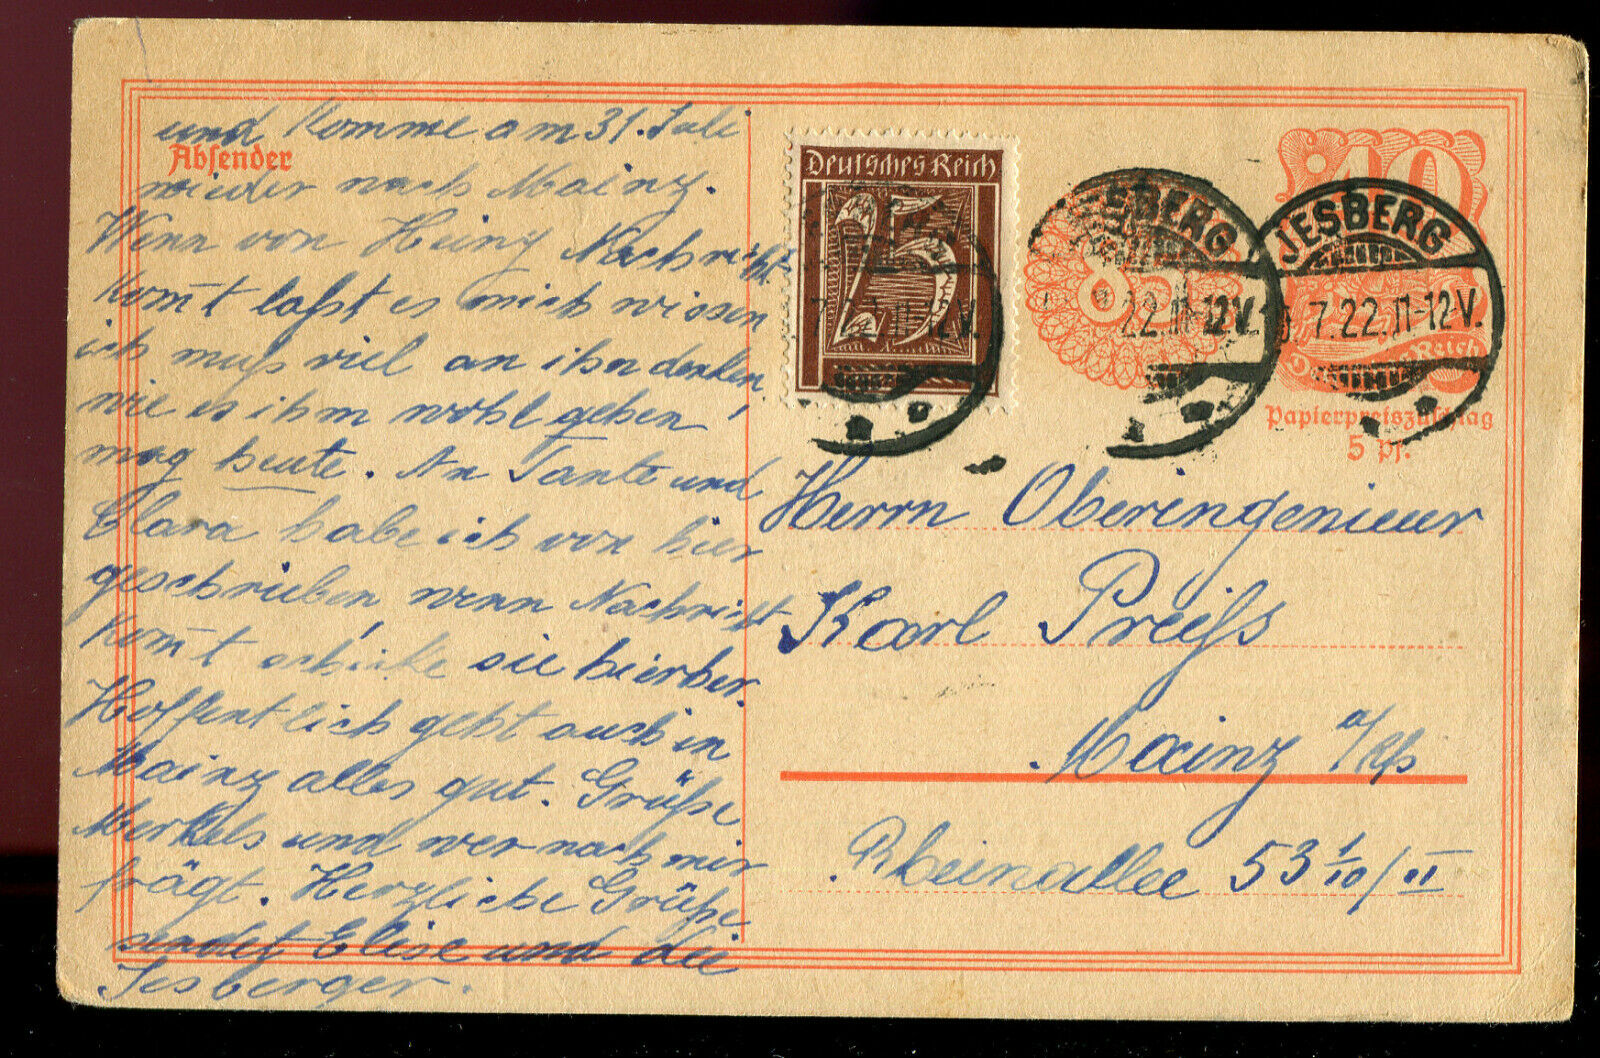 und komme am 31. Juli
Absender
wieder nach Mainz.
Wenn von Heinz Nachricht
kom̄t laßt es mich wissen
ich muß viel an ihn denken,
wie es ihm wohl gehen
mag heute. An Tante und
Clara habe ich von hier
geschrieben, wenn Nachricht
kom̄t schicke sie hierher.
Hoffentlich geht auch in
Mainz alles gut. Grüße
Merkels und wer nach mir
frägt. Herzliche Grüße
sendet Elise und die
Jesberger.
Deutsches Reich
25
JESBERG
7.22.11-12V.
ESBERG
22.11-12V.
JESBERG
7.22.11-12V.
40
Reich
Papierpreiszuschlag
5 Pf.
Herrn Oberingenieur
Karl Preiß
Mainz a/Rh
Rheinallee 53 1/10/II